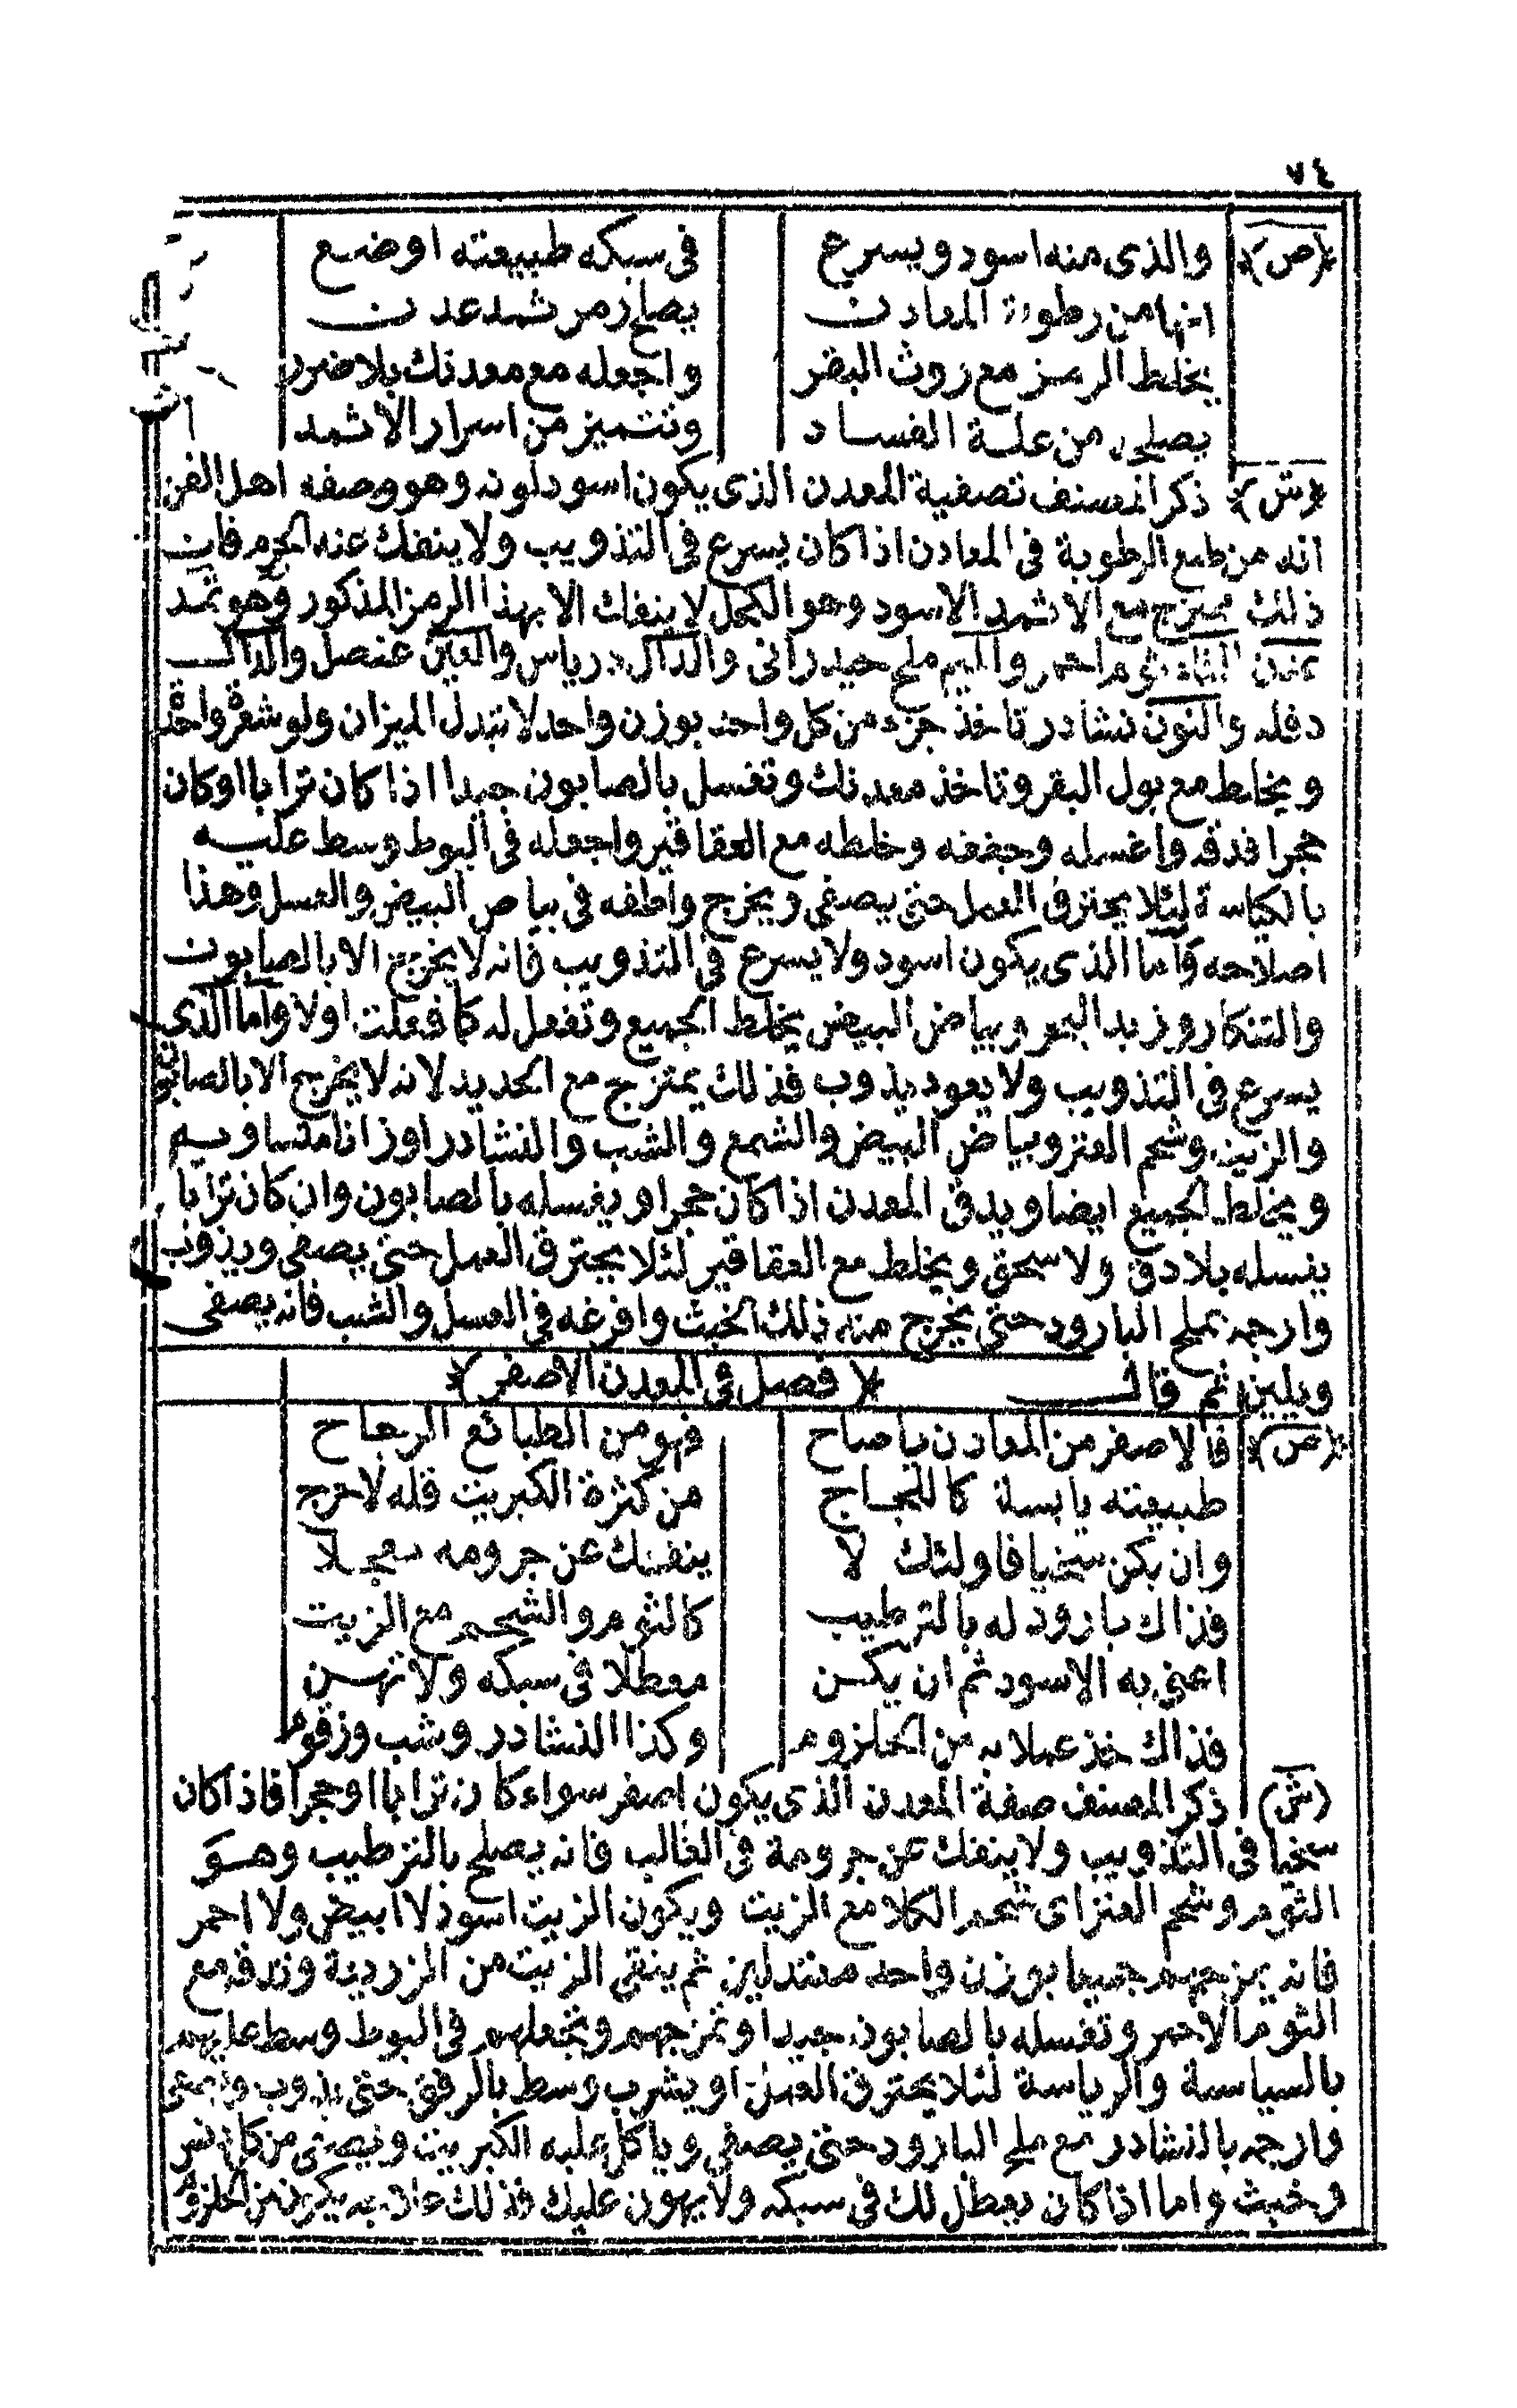 ٧٤
(ص) والذى منه اسود ويسرع فى سبكه طبيعته اوضع
انها من رطوبة المعادن يصلح رمز ثمد عدن
يخلط الرمز مع روث البقر واجعله مع معدنك بلا ضرر
يصلح من علة الفساد وتتميز من اسرار الاثمد
(ش) ذكر المصنف تصفية المعدن الذى يكون اسود لونه وهو وصفه اهل الفن
انه من طبع الرطوبة فى المعادن اذا كان يسرع فى التذويب ولا ينفك عنه الجرم فان
ذلك ممتزج مع الاثمد الاسود وهو الكحل لا ينفك الا بهذا الرمز المذكور وهو ثمد
عدن الثاء ثوم احمر والميم ملح حيدرانى والدال درياس والعين عنصل والدال
دفله والنون نشادر تاخذ جزء من كل واحد بوزن واحد لا تبدل الميزان ولو شعرة واحدة
ويخلط مع بول البقر وتاخذ معدنك وتغسل بالصابون جيدا اذا كان ترابا او كان
حجرا فدقه واغسله وجففه وخلطه مع العقاقير واجعله فى البوط وسط عليه
بالكياسة لئلا يحترق العمل حتى يصفى ويخرج واطفه فى بياض البيض والعسل وهذا
اصلاحه واما الذى يكون اسود ولا يسرع فى التذويب فانه لا يخرج الا بالصابون
والتنكار وزبد البحر وبياض البيض يخلط الجميع وتفعل له كما فعلت اولا واما الذى
يسرع فى التذويب ولا يعود يذوب فذلك يمتزج مع الحديد لانه لا يخرج الا بالصابون
والزيت وشحم العنز وبياض البيض والشمع والشب والنشادر اوزانا متساويه
ويخلط الجميع ايضا ويدق المعدن اذا كان حجرا ويغسله بالصابون وان كان ترابا
يغسله بلا دق ولا سحق ويخلط مع العقاقير لئلا يحترق العمل حتى يصفى ويذوب
وارجه بملح البارود حتى يخرج منه ذلك الخبث وافرغه فى العسل والشب فانه يصفى
ويلين ثم قال (فصل فى المعدن الاصفر)
(ص) فالاصفر من المعادن يا صاح فهو من الطبائع الرجاح
طبيعته يابسة كاللجاج من كثرة الكبريت قله لا حرج
وان يكن سخيا فاولئك لا ينفك عن جرومه معجلا
فذاك بارود له بالترطيب كالثوم والشحم مع الزيت
اعنى به الاسود ثم ان يكن معطلا فى سبكه ولا تهن
فذاك خذ عملا به من الحلزوم وكذا النشادر وشب وزقوم
(ش) ذكر المصنف صفة المعدن الذى يكون اصفر سواء كان ترابا او حجرا فاذا كان
سخيا فى التذويب ولا ينفك عن جرومة فى الغالب فانه يصلح بالترطيب وهو
الثوم وشحم العنز اى شحم الكلا مع الزيت ويكون الزيت اسود لا ابيض ولا احمر
فانه يمزجهم جميعا بوزن واحد معتدلين ثم ينقى الزيت من الزردية وتدقه مع
الثوم الاحمر وتغسله بالصابون جيدا وتمزجهم وتجعلهم فى البوط وسط عليهم
بالسياسة والرياسة لئلا يحترق العمل او يشرب وسط بالرفق حتى يذوب
وارجه بالنشادر مع ملح البارود حتى يصفى وياكل عليه الكبريت ويصفى من كل
وخبث واما اذا كان يعطل لك فى سبكه ولا يهون عليك فذلك يكون من الحلزوم